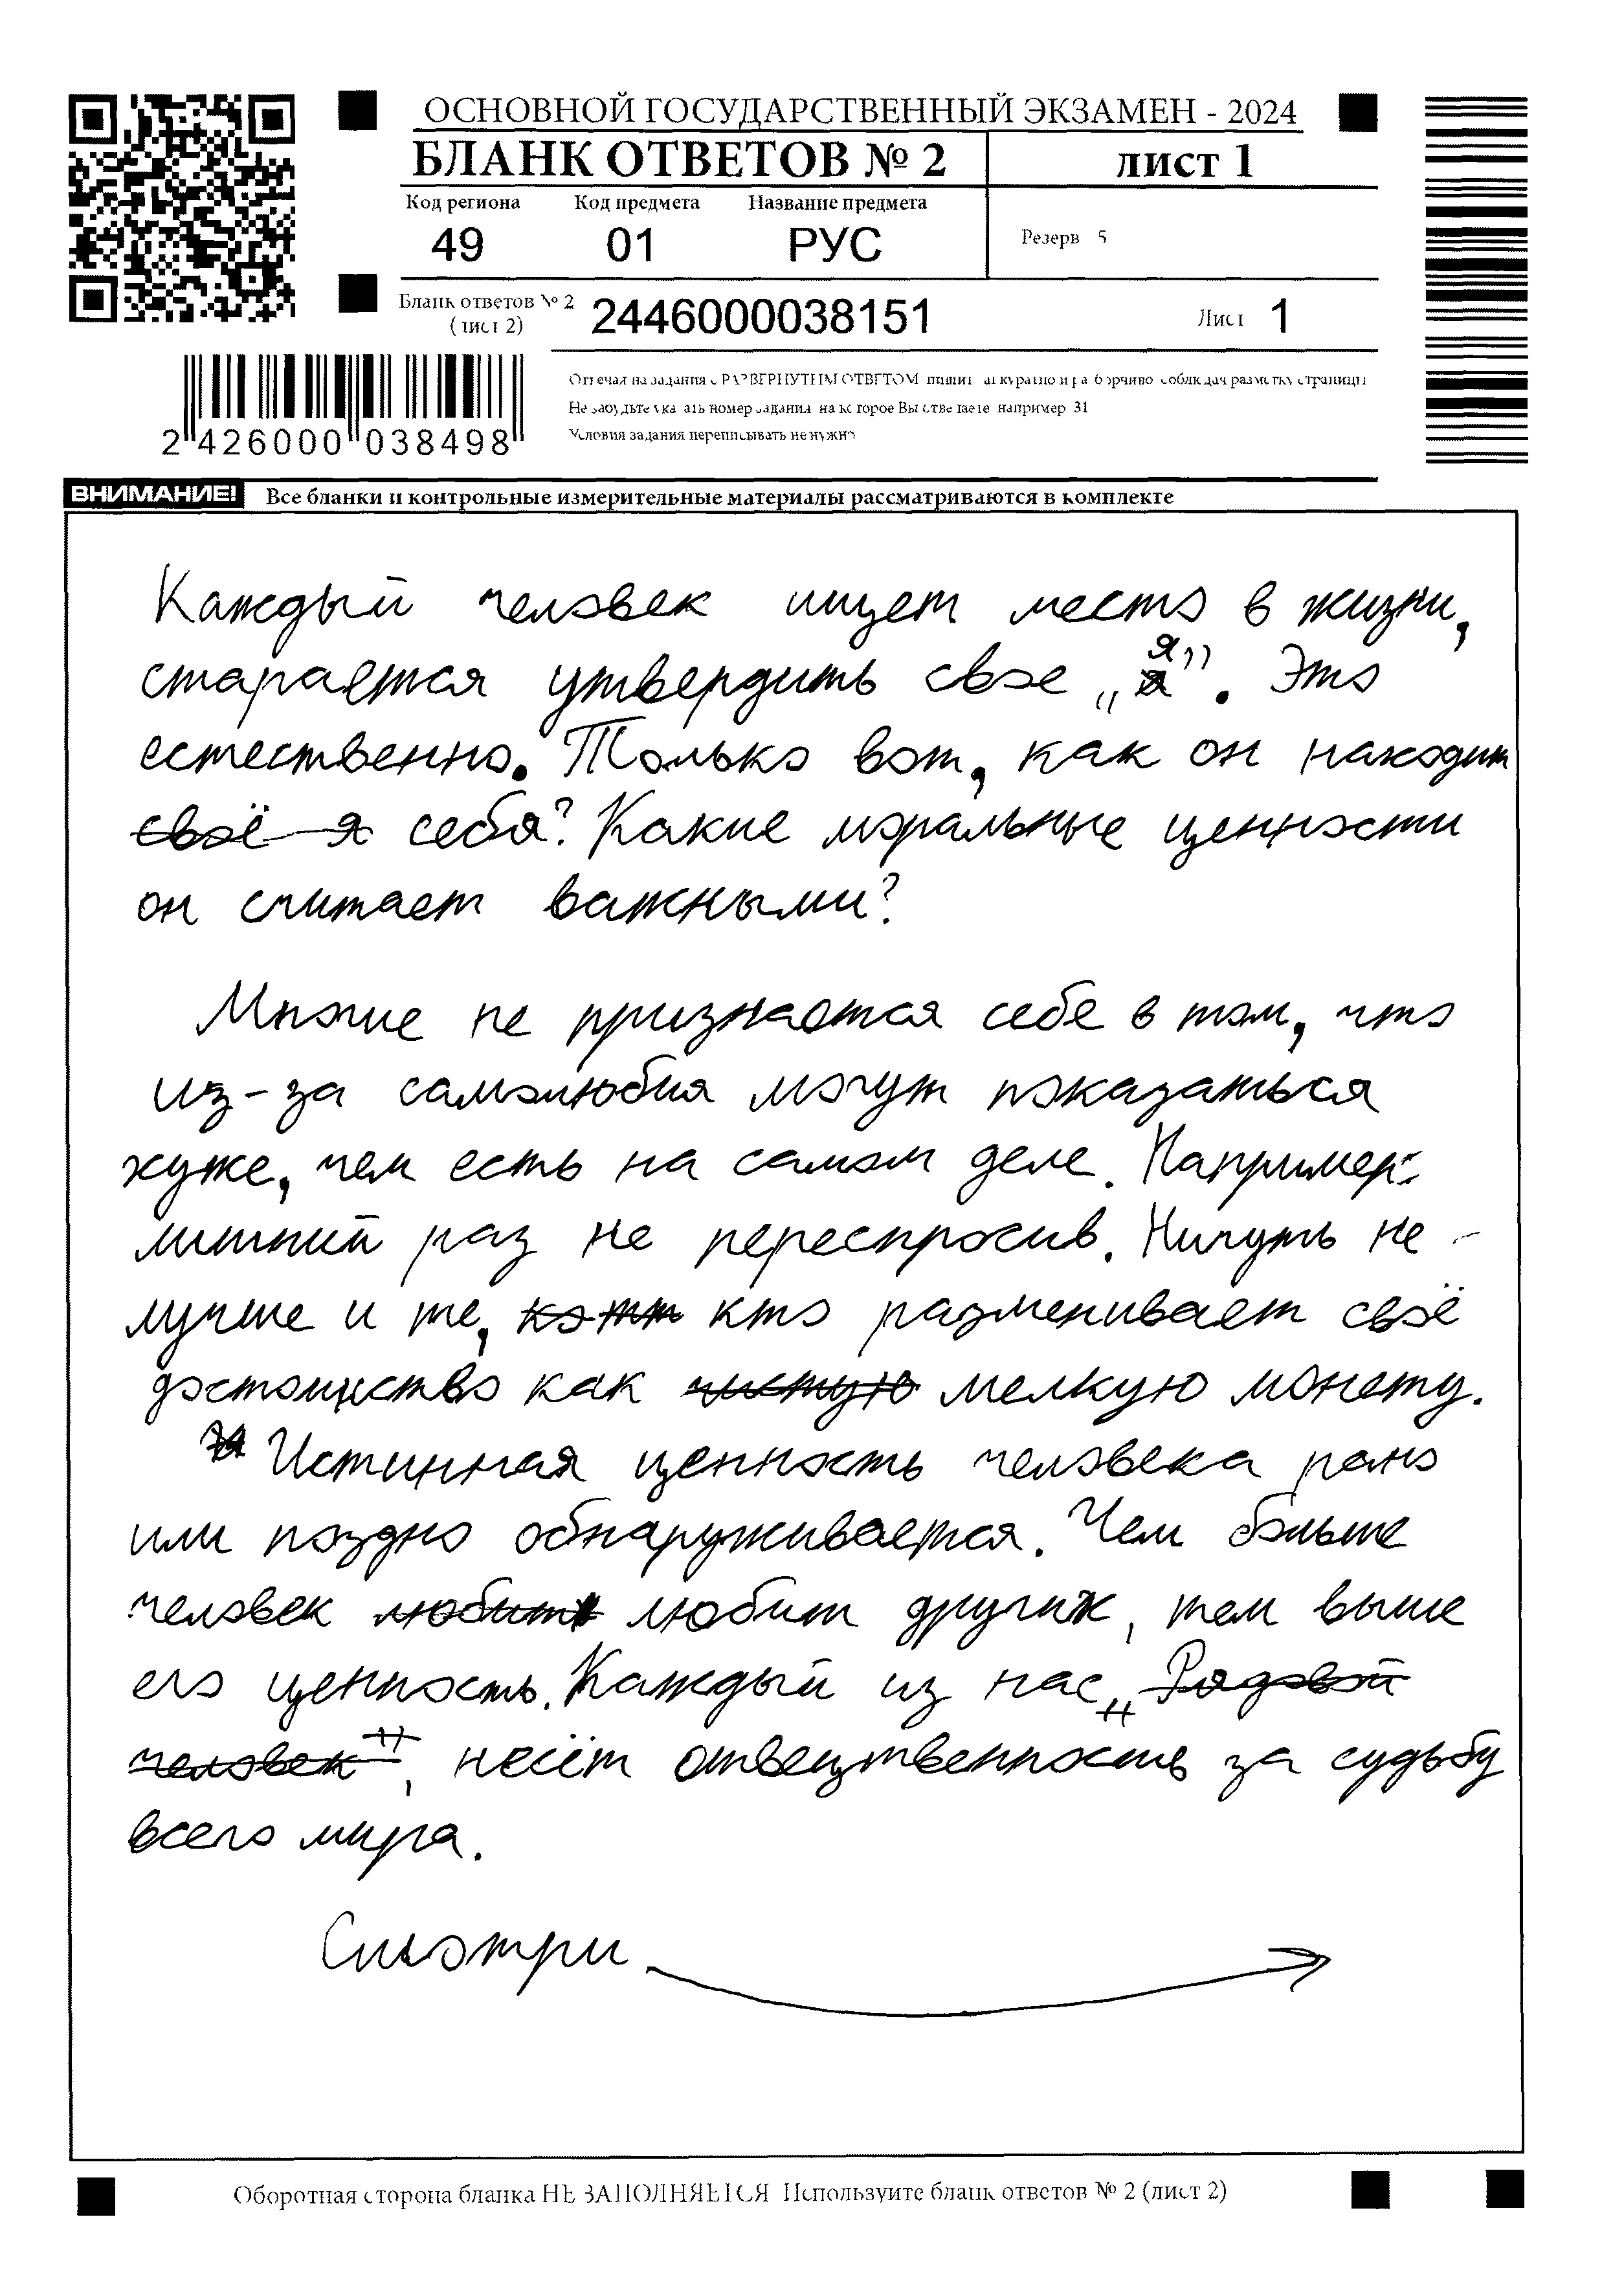 ОСНОВНОЙ ГОСУДАРСТВЕННЫЙ ЭКЗАМЕН - 2024
БЛАНК ОТВЕТОВ № 2 лист 1
Код региона Код предмета Название предмета
49 01 РУС Резерв 5
Бланк ответов № 2 (лист 2) 2446000038151 Лист 1
Отвечая на задания с РАЗВЕРНУТЫМ ОТВЕТОМ, пишите аккуратно и разборчиво, соблюдая разметку страницы
Не забудьте указать номер задания, на которое Вы отвечаете, например, 31
Условия задания переписывать не нужно
2 426000 038498
ВНИМАНИЕ! Все бланки и контрольные измерительные материалы рассматриваются в комплекте
Каждый человек ищет место в жизни,
старается утвердить свое „я”. Это
естественно. Только вот, как он находит
своё я себя? Какие моральные ценности
он считает важными?
Многие не признаются себе в том, что
из-за самолюбия могут показаться
хуже, чем есть на самом деле. Например:
лишний раз не переспросив. Ничуть не
лучше и те, кто разменивает своё
достоинство как чистую мелкую монету.
Истинная ценность человека рано
или поздно обнаруживается. Чем больше
человек любит любит других, тем выше
его ценность. Каждый из нас „Рядовой
человек”, несёт ответственность за судьбу
всего мира.
Смотри
Оборотная сторона бланка НЕ ЗАПОЛНЯЕТСЯ Используйте бланк ответов № 2 (лист 2)